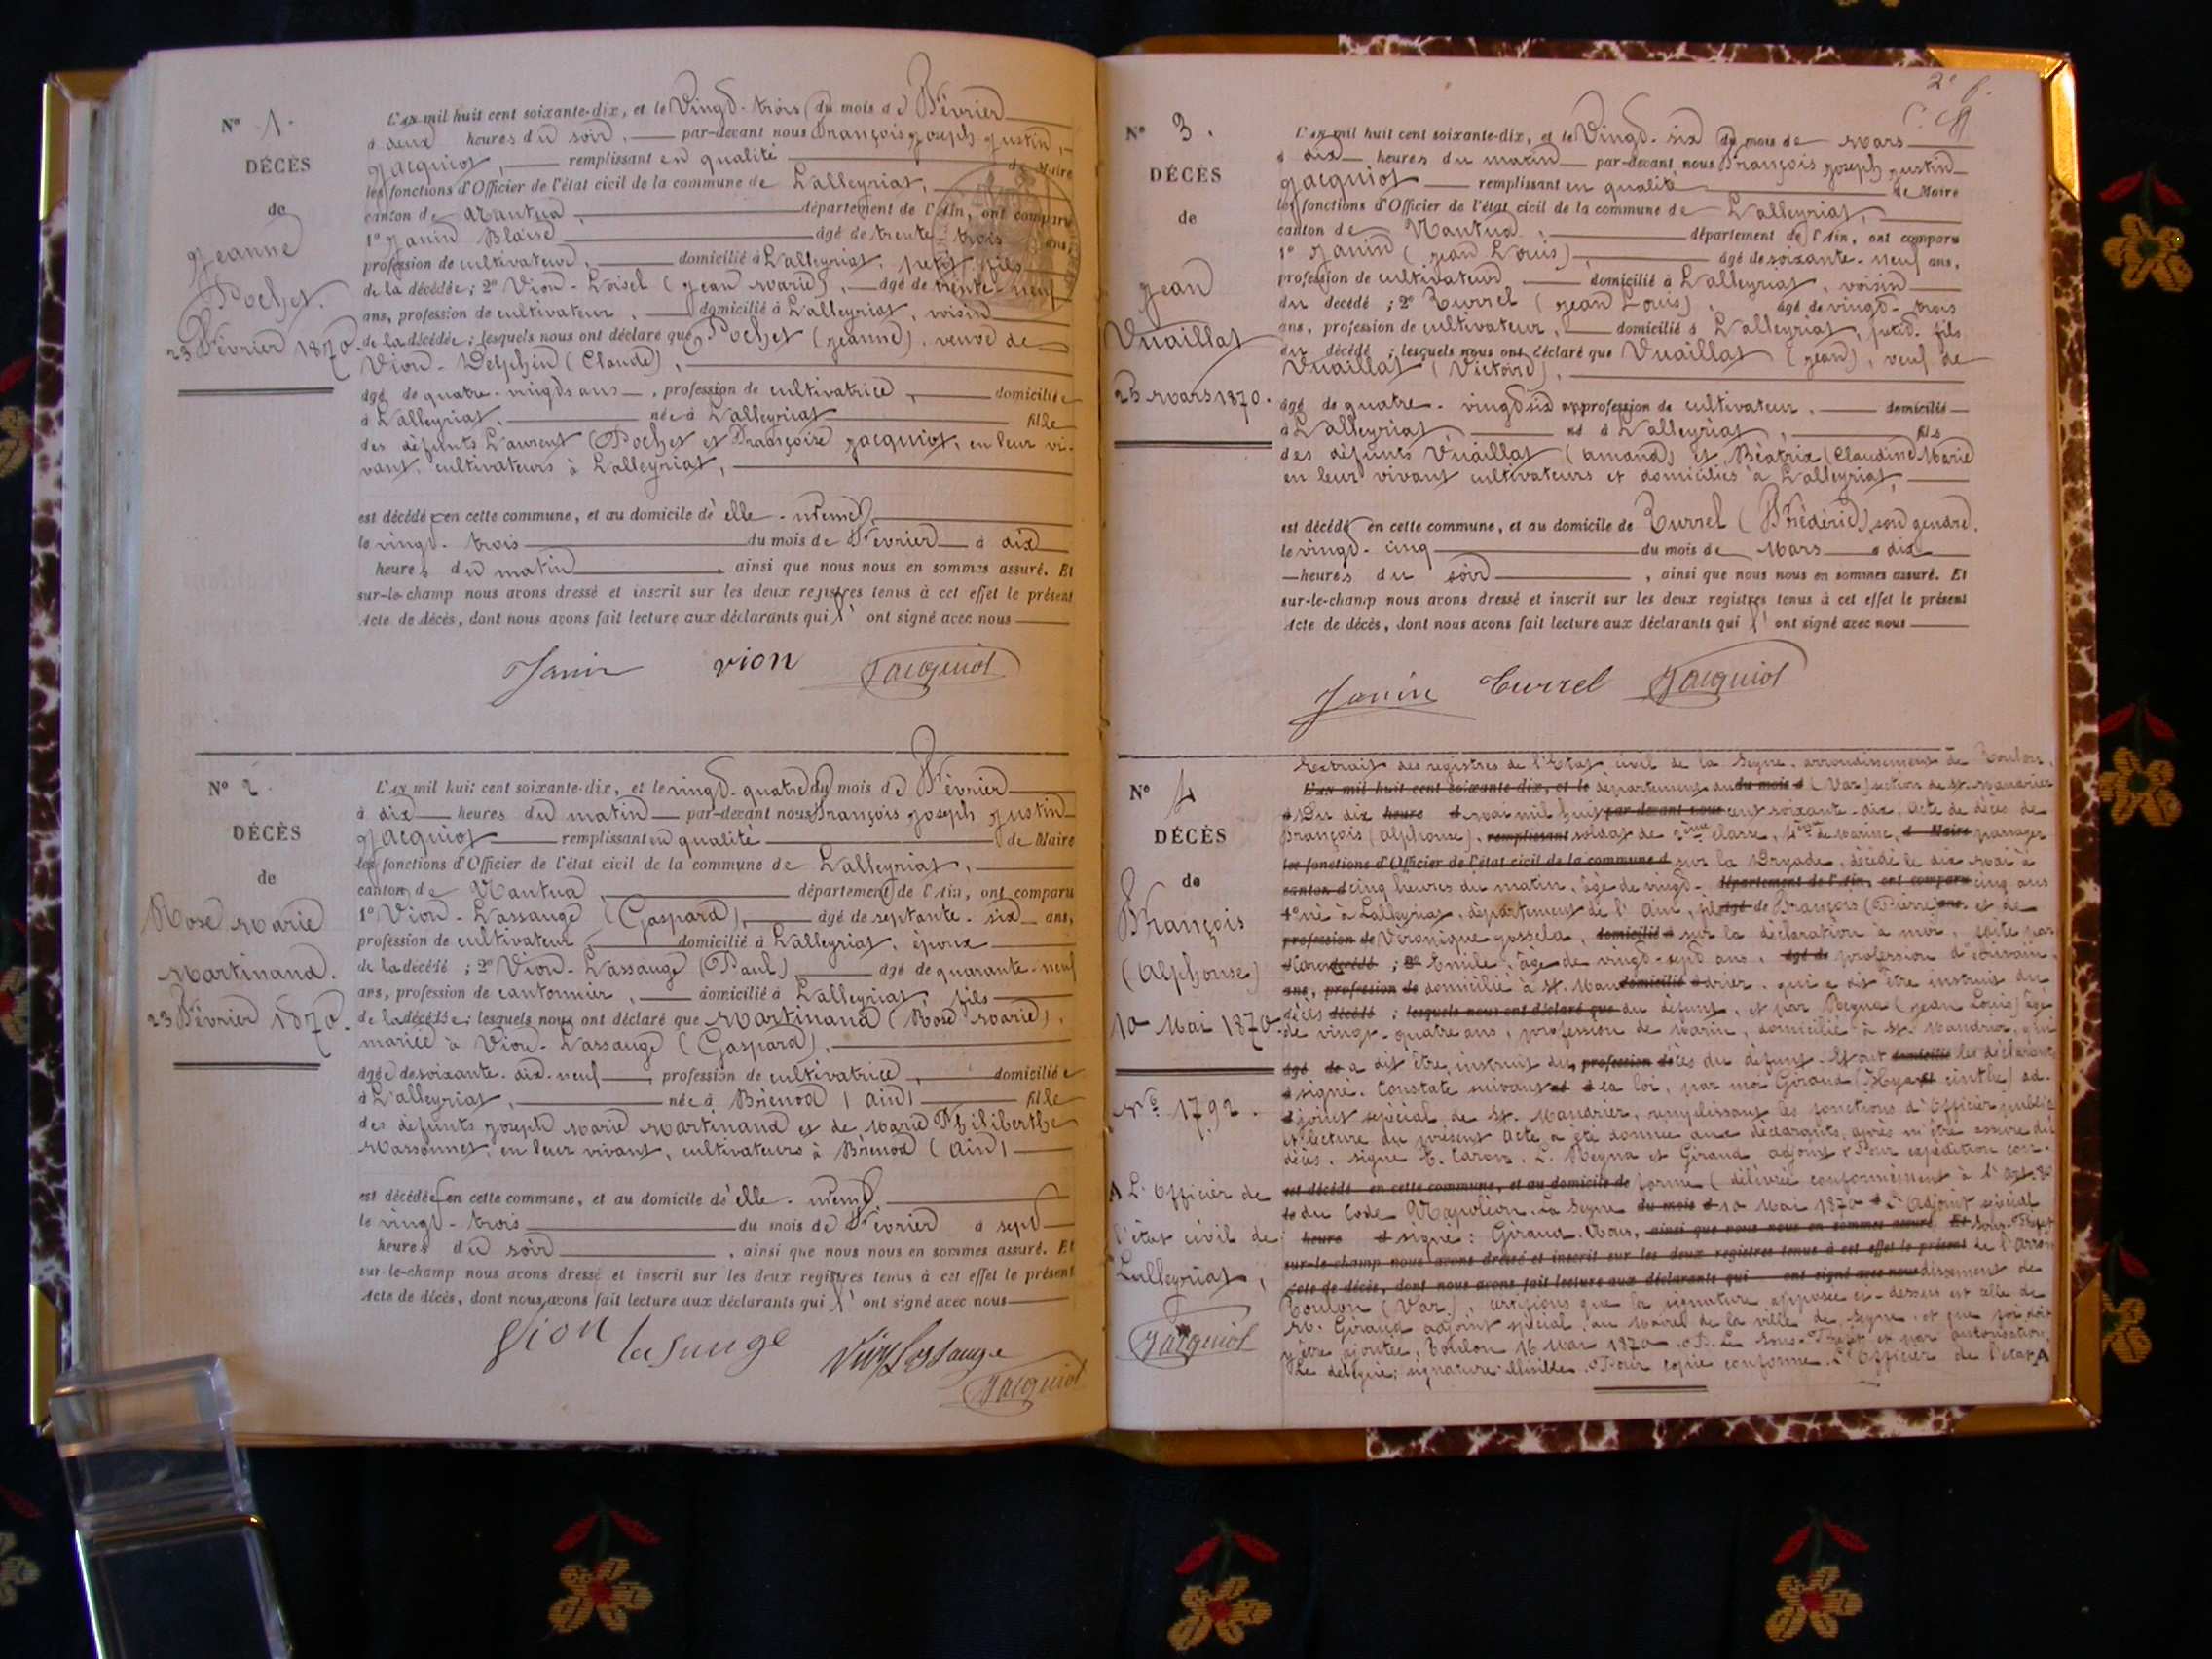 N° 1.
DÉCÈS
de
Jeanne
Pochet.
23 Février 1870.
L'AN mil huit cent soixante-dix, et le vingt-trois du mois de Février
à deux heures du soir, par-devant nous François Joseph Justin
Jacquiot, remplissant en qualité de Maire
les fonctions d'Officier de l'état civil de la commune de Lalleyriat,
canton de Nantua, département de l'Ain, ont comparu
1° Janin Blaise âgé de trente-trois ans,
profession de cultivateur, domicilié à Lalleyriat, petit fils
de la décédée; 2° Vion-Loisel (Jean Marie), âgé de trente-neuf
ans, profession de cultivateur, domicilié à Lalleyriat, voisin
de la décédée; lesquels nous ont déclaré que Pochet (Jeanne), veuve de
Vion-Delphin (Claude),
âgé de quatre-vingts ans, profession de cultivatrice, domiciliée
à Lalleyriat, née à Lalleyriat fille
des défunts Laurent Pochet et Françoise Jacquiot, en leur vi-
vant cultivateurs à Lalleyriat,
est décédée en cette commune, et au domicile d'elle-même,
le vingt-trois du mois de Février à dix
heures du matin, ainsi que nous nous en sommes assuré. Et
sur-le-champ nous avons dressé et inscrit sur les deux registres tenus à cet effet le présent
Acte de décès, dont nous avons fait lecture aux déclarants qui l' ont signé avec nous
Janin vion Jacquiot
N° 2.
DÉCÈS
de
Rose Marie
Martinand.
23 Février 1870.
L'AN mil huit cent soixante-dix, et le vingt-quatre du mois de Février
à dix heures du matin par-devant nous François Joseph Justin
Jacquiot remplissant en qualité de Maire
les fonctions d'Officier de l'état civil de la commune de Lalleyriat,
canton de Nantua, département de l'Ain, ont comparu
1° Vion-Lassauge (Gaspard), âgé de septante-six ans,
profession de cultivateur, domicilié à Lalleyriat, époux
de la décédé; 2° Vion-Lassauge (Paul), âgé de quarante-neuf
ans, profession de cantonnier, domicilié à Lalleyriat, fils
de la décédée; lesquels nous ont déclaré que Martinand (Rose Marie),
mariée à Vion-Lassauge (Gaspard),
âgée de soixante-dix-neuf, profession de cultivatrice, domiciliée
à Lalleyriat, née à Brénod (Ain) fille
des défunts Joseph Marie Martinand et de Marie Philiberthe
Massonnet, en leur vivant, cultivateurs à Brénod (Ain)
est décédée en cette commune, et au domicile d'elle-même
le vingt-trois du mois de Février à sept
heures du soir, ainsi que nous nous en sommes assuré. Et
sur-le-champ nous avons dressé et inscrit sur les deux registres tenus à cet effet le présent
Acte de décès, dont nous avons fait lecture aux déclarants qui l' ont signé avec nous
Vion lasauge
Jacquiot
2e f.
N° 3.
DÉCÈS
de
Jean
Vuaillat
25 Mars 1870.
L'AN mil huit cent soixante-dix, et le vingt-six du mois de Mars
à dix heures du matin par-devant nous François Joseph Justin
Jacquiot remplissant en qualité de Maire
les fonctions d'Officier de l'état civil de la commune de Lalleyriat,
canton de Nantua, département de l'Ain, ont comparu
1° Janin (Jean Louis), âgé de soixante-neuf ans,
profession de cultivateur domicilié à Lalleyriat, voisin
du décédé; 2° Turrel (Jean Louis), âgé de vingt-trois
ans, profession de cultivateur, domicilié à Lalleyriat, petit-fils
du décédé; lesquels nous ont déclaré que Vuaillat (Jean), veuf de
Vuaillat (Victoire),
âgé de quatre-vingt six profession de cultivateur, domicilié
à Lalleyriat né à Lalleyriat, fils
des défunts Vuaillat (amand) et Béatrix (Claudine Marie
en leur vivant cultivateurs et domiciliés à Lalleyriat,
est décédé en cette commune, et au domicile de Turrel (Frédéric) son gendre.
le vingt-cinq du mois de Mars à dix
heures du soir, ainsi que nous nous en sommes assuré. Et
sur-le-champ nous avons dressé et inscrit sur les deux registres tenus à cet effet le présent
Acte de décès, dont nous avons fait lecture aux déclarants qui l' ont signé avec nous
Janin Turrel Jacquiot
N° 4
DÉCÈS
de
François
(Alphonse)
10 Mai 1870.
N° 1792.
Extrait des registres de l'Etat civil de la Seyne, arrondissement de Toulon,
département du (Var) section de St. Mandrier
Du dix mai mil huit cent soixante-dix, Acte de décès de
François (Alphonse), soldat de 2ème classe, de Marine, passager
sur la Dryade, décédé le dix Mai à
cinq heures du matin, âgé de vingt-cinq ans
né à Lalleyriat, département de l'Ain, fils de François (Pierre) et de
Véronique Gossela, sur la déclaration à moi, faite par
Caron Emile, âgé de vingt-sept ans, profession d'écrivain,
domicilié à St. Mandrier, qui a dit être instruit du
décès du défunt, et par Regna (Jean Louis) âgé
de vingt-quatre ans, profession de marin, domicilié à St. Mandrier, qui
a dit être instruit du décès du défunt. Et ont les déclarants
signé. Constaté suivant la loi, par moi Giraud (Hyacinthe) ad-
joint spécial de St. Mandrier, remplissant les fonctions d'Officier public
Et lecture du présent Acte a été donnée aux déclarants, après m'être assuré du
décès. Signé E. Caron, L. Regna et Giraud adjoint. Pour expédition con-
forme (délivrée conformément à l'art. 80
du Code Napoléon. La Seyne 10 Mai 1870. L'Adjoint spécial
signé: Giraud. Nous, Sous-Préfet
de l'arron
dissement de
Toulon (Var), certifions que la signature apposée ci-dessus est celle de
M. Giraud adjoint spécial au Maire de la ville de Seyne et que foi doit
y être ajoutée, Toulon 16 Mai 1870. P. Le Sous-Préfet et par autorisation,
Le délégué; signature illisible. Pour copie conforme. L'Officier de l'état A
A L'Officier de
l'état civil de
Lalleyriat,
Jacquiot